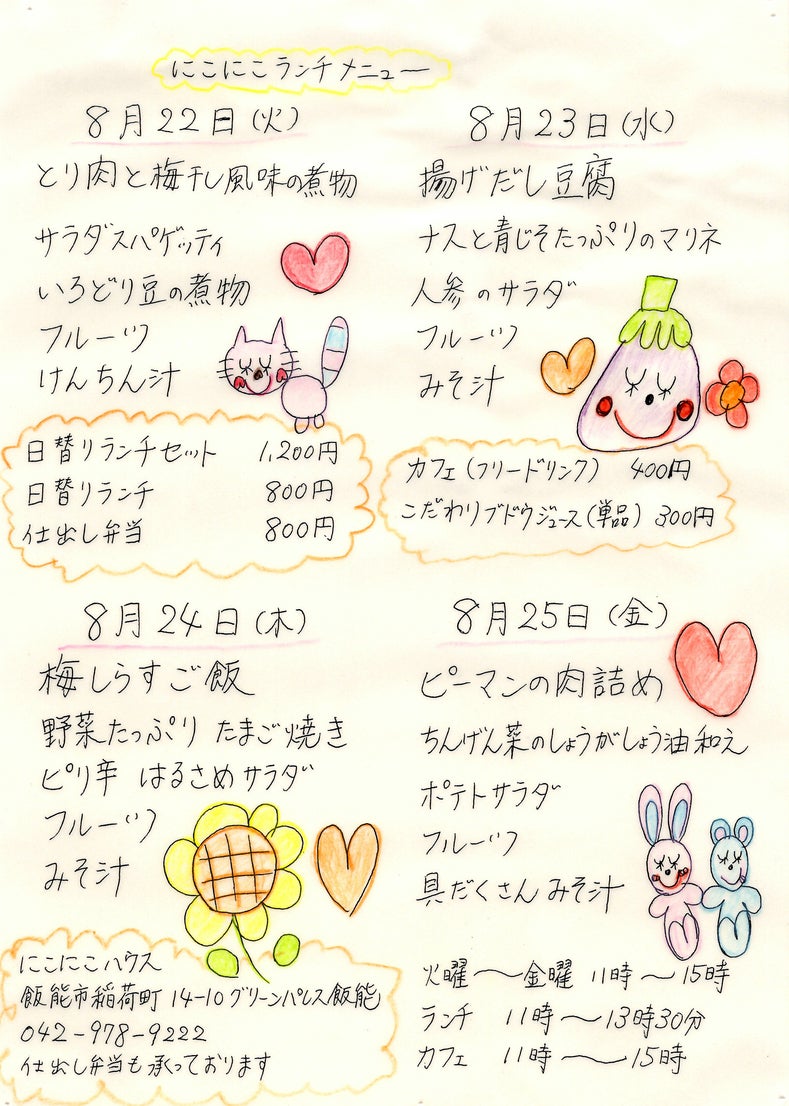 にこにこランチメニュー
8月22日(火)
とり肉と梅干し風味の煮物
サラダスパゲッティ
いろどり豆の煮物
フルーツ
けんちん汁
日替りランチセット 1,200円
日替りランチ 800円
仕出し弁当 800円
8月23日(水)
揚げだし豆腐
ナスと青じそたっぷりのマリネ
人参のサラダ
フルーツ
みそ汁
カフェ(フリードリンク) 400円
こだわりブドウジュース(単品) 300円
8月24日(木)
梅しらすご飯
野菜たっぷり たまご焼き
ピリ辛 はるさめサラダ
フルーツ
みそ汁
にこにこハウス
飯能市稲荷町 14-10 グリーンパレス飯能
042-978-9222
仕出し弁当も承っております
8月25日(金)
ピーマンの肉詰め
ちんげん菜のしょうがしょう油和え
ポテトサラダ
フルーツ
具だくさん みそ汁
火曜〜金曜 11時〜15時
ランチ 11時〜13時30分
カフェ 11時〜15時